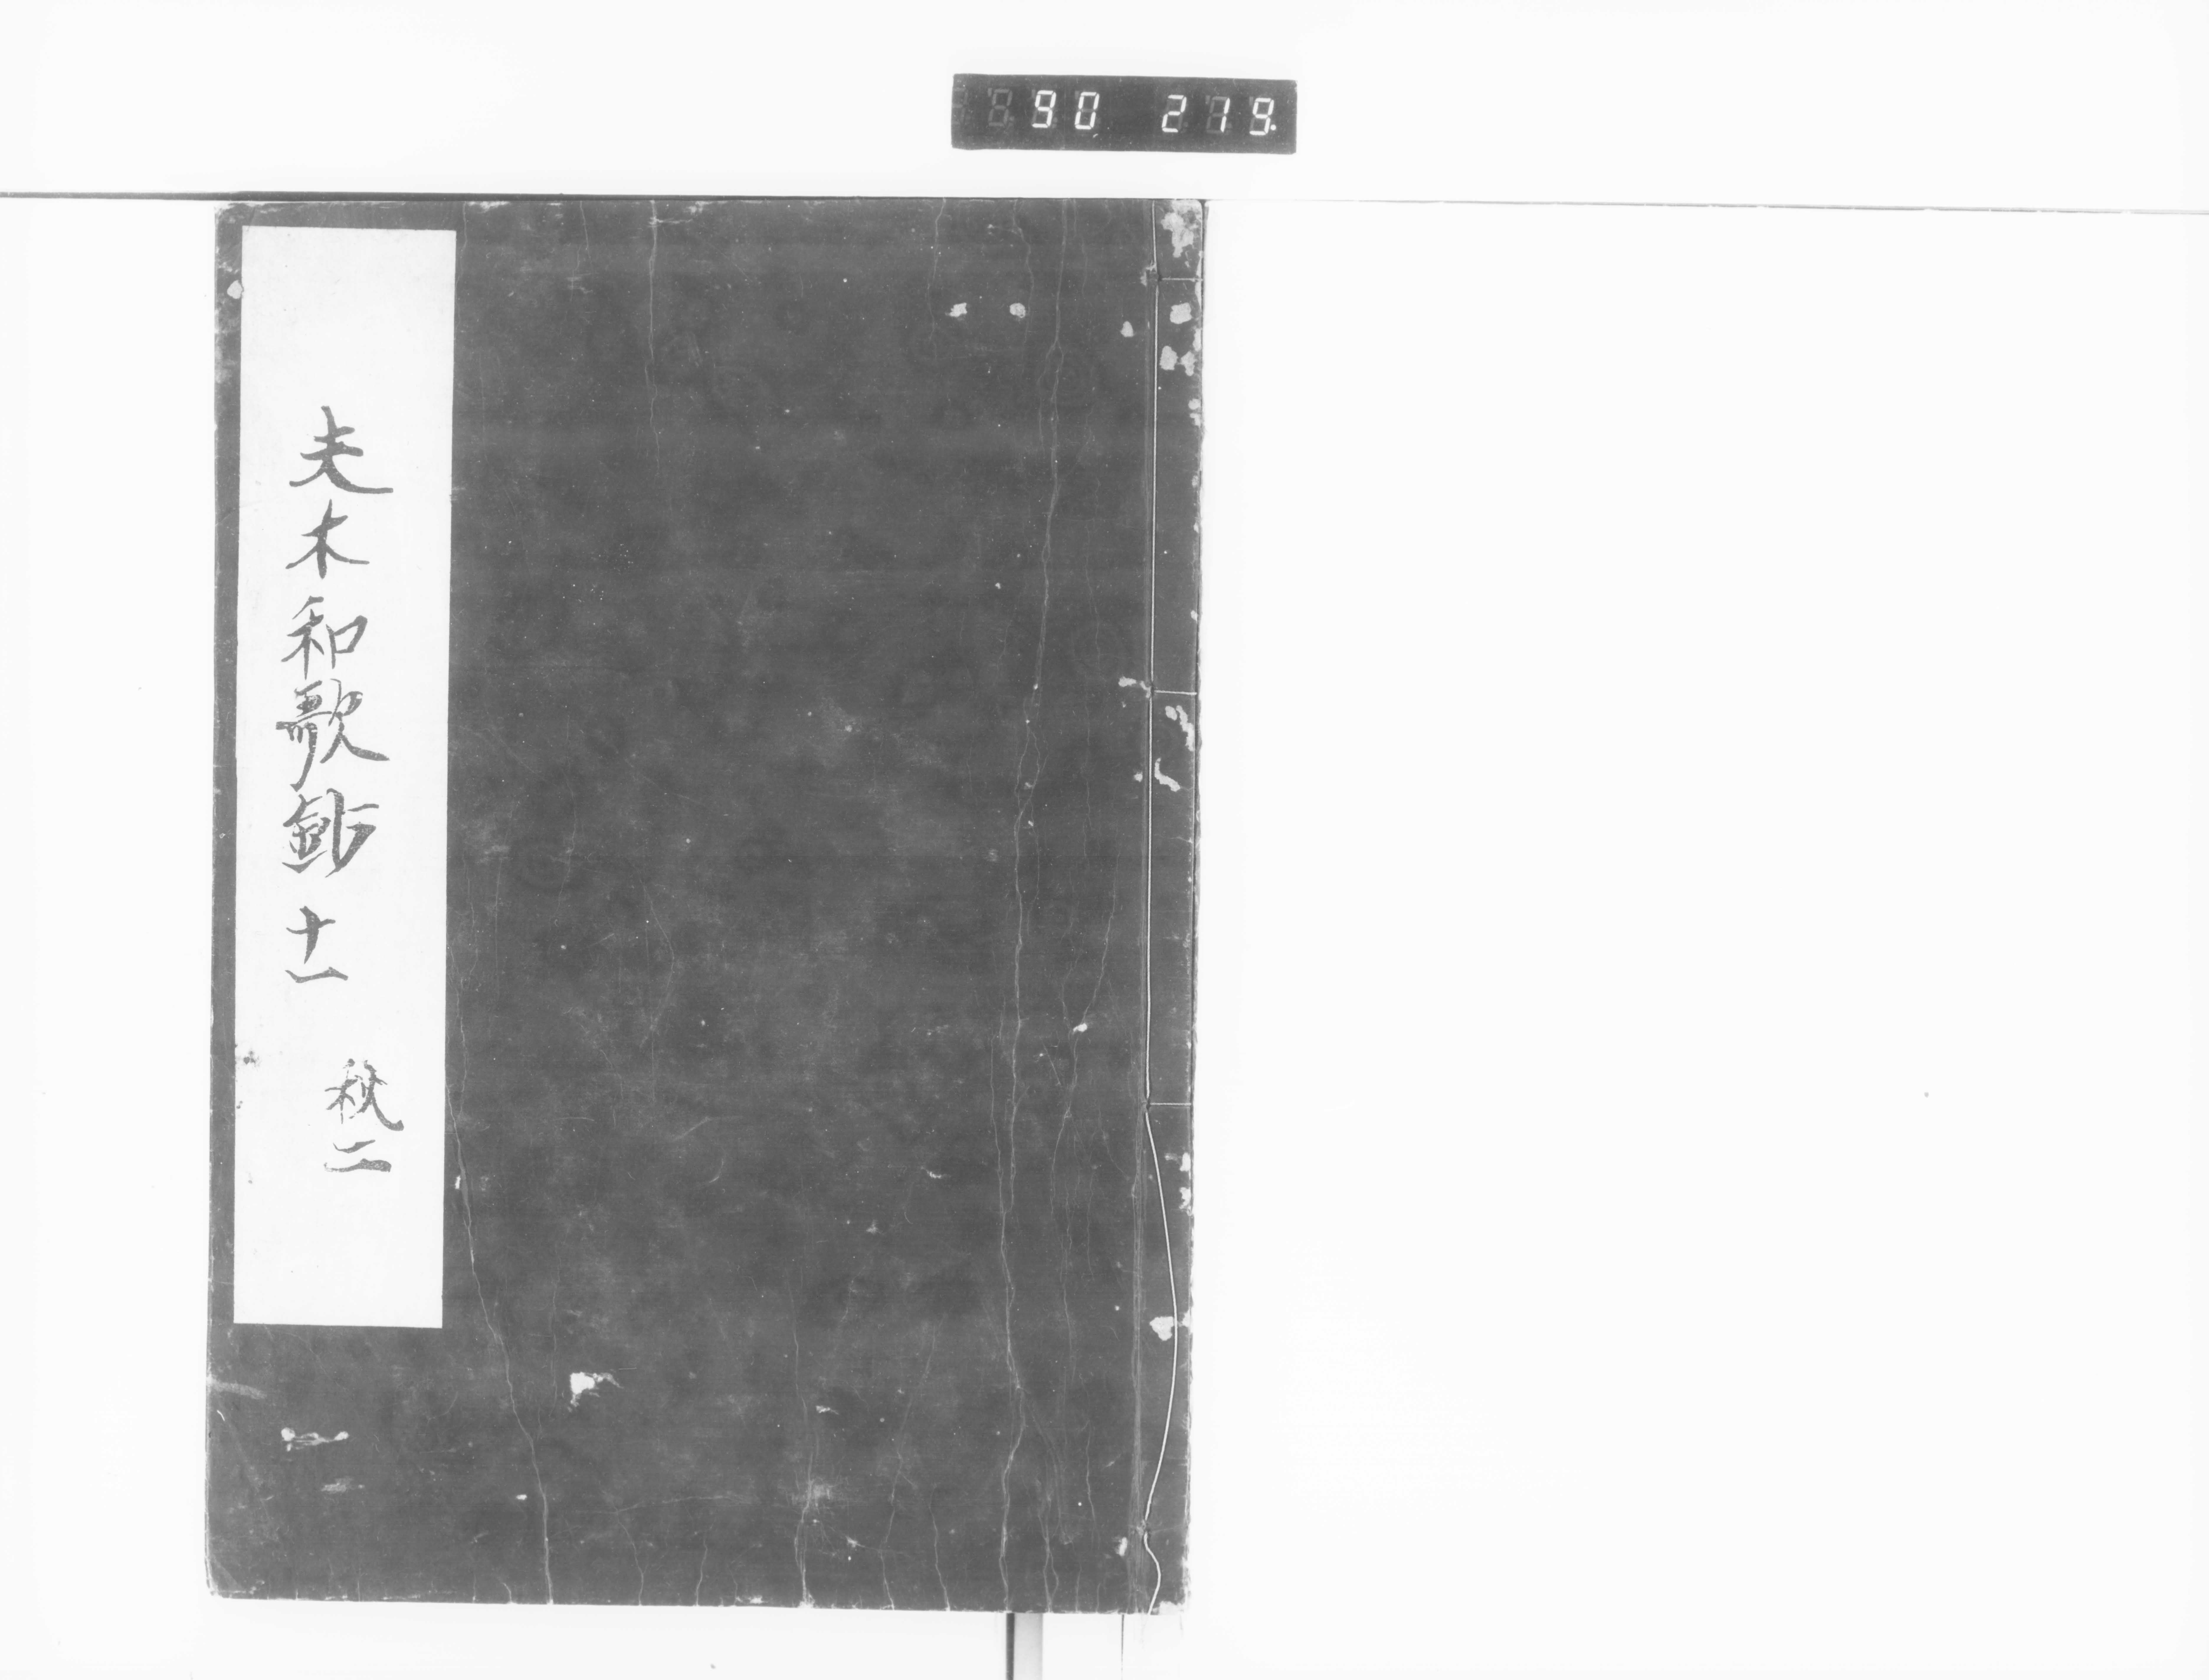 90 219.
夫木和歌鈔 十一
秋二